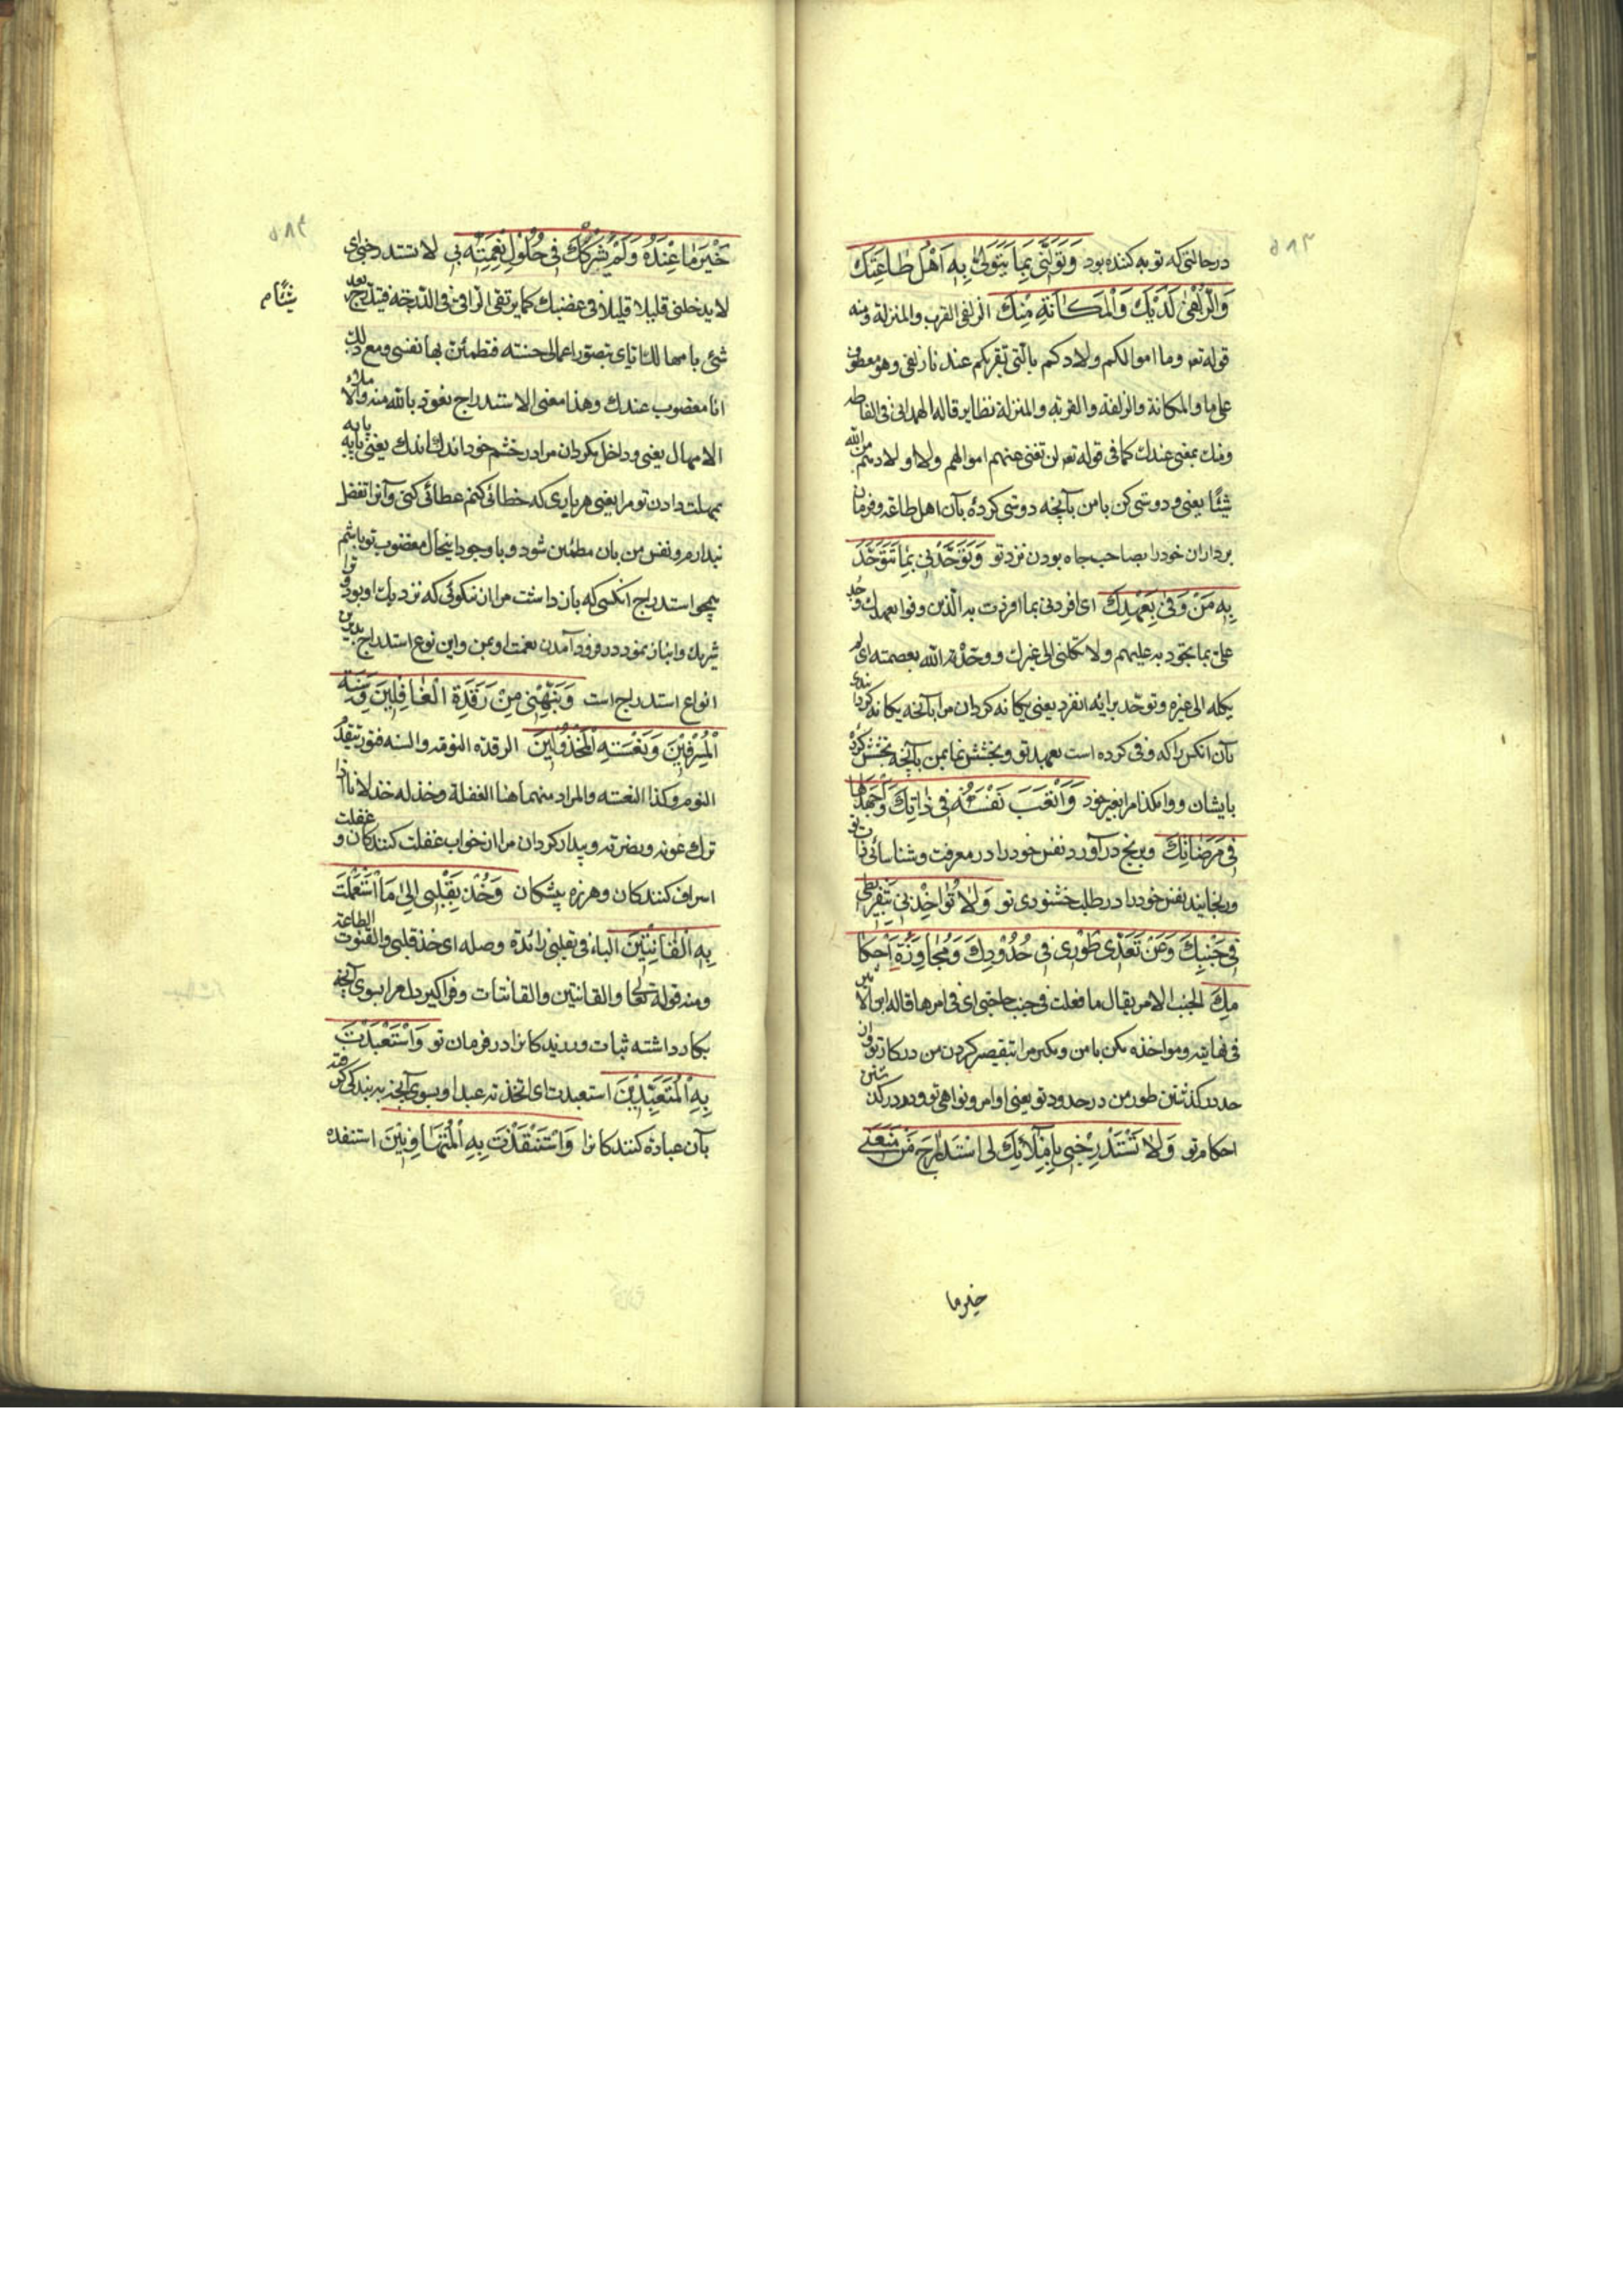 درحالتی که توبه کننده بود وَتَوَلَّنِی بِمَا یَتَوَلّٰی بِهِ اَهْلَ طٰاعَتِكَ
وَالزُّلْفٰی لَدَیْكَ وَالْمَكٰانَةِ مِنْكَ الزلفی القرب والمنزلة ومنه
قوله تعه وما اموالکم ولادکم بالتی تقربکم عندنا زلفی وهو معطوف
علی ما والمکانة والزلفة والقربة والمنزلة نظایر قاله الهمدانی فی الفاظه
ومنك بمعنی عندك کما فی قوله تعه لن تغنی عنهم اموالهم ولا اولادهم من الله
شیئًا یعنی ودوستی کن با من بآنچه دوستی کردهٔ بآن اهل طاعة وفرمان
برداران خود را بصاحب جاه بودن نزد تو وَتَوَحَّدْنِی بِمٰا تَتَوَحَّدُ
بِهِ مَنْ وَفٰی بِعَهْدِكَ ای افردنی بما افردت به الذین وفوا بعهدك وجد
علیّ بما تجود به علیهم ولا تکلنی الی غیرك ووحّده الله بعصمته ای لم
یکله الی غیره وتوحّد برایه انفرد یعنی یکانه کردان مرا بآنچه یکانه کردانیدی
بآن انکس را که وفی کرده است بعهد تو وبخشش نما بمن بآنچه بخشش کردهٔ
بایشان ووامکذا مرا بغیر خود وَاَتْعَبَ نَفْسَهُ فِی ذٰاتِكَ وَاَجْهَدَهٰا
فِی مَرْضٰاتِكَ وبرنج درآورد نفس خود را در معرفت وشناسائی ذات تو
ورنجانید نفس خود را در طلب خشنودی تو وَلٰا تُؤٰاخِذْنِی بِتَفْرِیطِی
فِی جَنْبِكَ وَعَنْ تَعَدِّی طَوْرِی فِی حُدُودِكَ وَمُجٰاوَزَةِ اَحْكٰا
مِكَ الجنب الامر یقال ما فعلت فی جنب حاجتی ای فی امرها قاله ابن الاثیر
فی نهایته ومواخذه مکن با من ومکیر مرا بتقصیر کردن من در کار تو واز
حد در کذشتن طور من در حدود تو یعنی اوامر ونواهی تو ودر در کذشتن
احکام تو وَلٰا تَسْتَدْرِجْنِی بِاِمْلٰائِكَ لِی اسْتِدْرٰاجَ مَنْ مَنَعَنِی
خیر ما
خَیْرَ مٰا عِنْدَهُ وَلَمْ یَشْرَكْكَ فِی حُلُولِ نِعْمَتِهِ بِی لا تستدرجنی ای
لا یدخلنی قلیلا قلیلا فی غضبك کما یرتقی الراقی فی الدرجه فیتدرج بعد
شیئًا م
شئ بامهالك ایای بتصور اعمالی حسنته فتطمئن بها نفسی ومع ذلك
انا مغضوب عندك وهذا معنی الاستدراج نعوذ بالله منه والاملاء
الامهال یعنی وداخل مکردان مرا در خشم خود اندك اندك یعنی پایه پایه
بمهلت دادن تو مرا یعنی هر باری که خطائی کنم عطائی کنی وآنرا تفضل
پندارم ونفس من بان مطمئن شود وباوجود اینحال مغضوب تو باشم
همچو استدراج انکسی که بازداشت مرا ان نیکوئی که نزدیك او بود وترا
شریك وانباز نمود در فرود آمدن نعمت او بمن واین نوع استدراج بدترین
انواع استدراج است وَنَبِّهْنِی مِنْ رَقْدَةِ الْغٰافِلِینَ وَسِنَةِ
الْمُسْرِفِینَ وَنَعْسَةِ الْمَخْذُولِینَ الرقدة النومة والسنه فتور یتقدم
النوم وکذا النعسة والمراد منهما هنا الغفلة وخذله خذلانا اذا
ترك عونه ونصرته وبیدار کردان مرا از خواب غفلت کنندکان وغفلت
اسراف کنندکان وهرزه پیشکان وَخُذْ بِقَلْبِی اِلٰی مَا اسْتَعْمَلْتَ
بِهِ الْقٰانِتِینَ الباء فی بقلبی زائدة وصله ای خذ قلبی والقنوت الطاعة
ومنه قوله تعالی والقانتین والقانتات وفراکیر دل مرا بسوی آنچه
بکار داشته ثبات ورزیدکانرا در فرمان تو وَاسْتَعْبَدْتَ
بِهِ الْمُتَعَبِّدِینَ استعبدت ای اتخذته عبدا وبسوی آنچه به بندکی کرفته
بآن عبادة کنندکانرا وَاسْتَنْقَذْتَ بِهِ الْمُتَهٰاوِنِینَ استنقذه